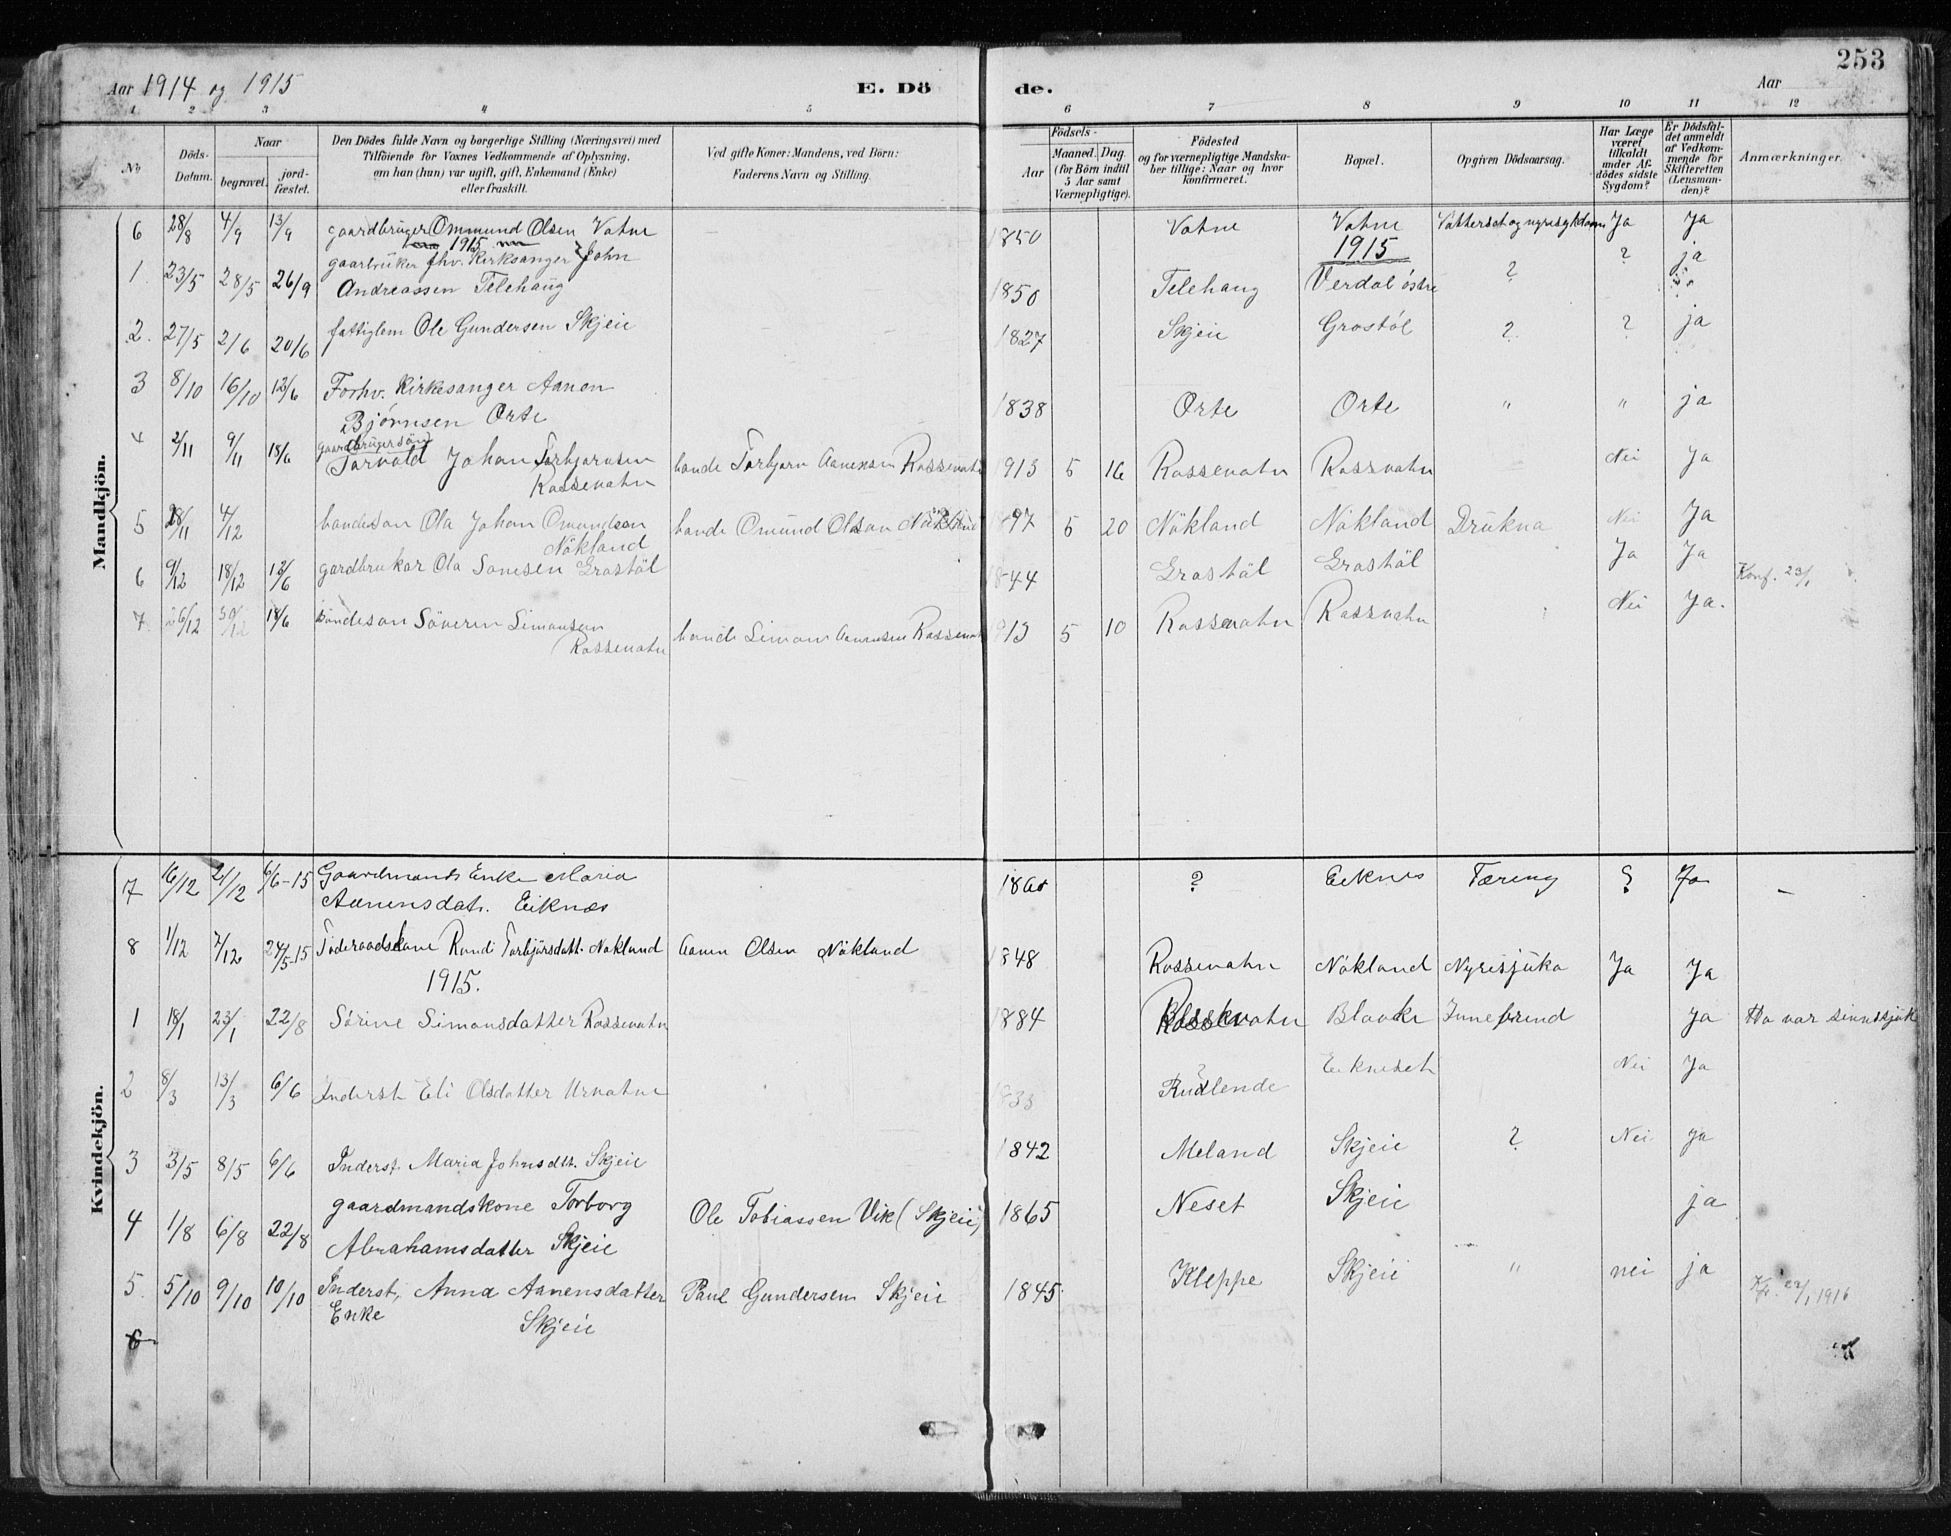 253
Aar 1914 og 1915
E. Dö
de.
Aar
1 2 3 4 5 6 7 8 9 10 11 12
No
Döds-Datum.
Naar
begravet.
jord-fæstet.
Den Dödes fulde Navn og borgerlige Stilling (Næringsvei) med
Tilföiende for Voxnes Vedkommende af Oplysning,
om han (hun) var ugift, gift, Enkemand (Enke)
eller fraskilt.
Ved gifte Koner: Mandens, ved Börn:
Faderens Navn og Stilling.
Födsels-
Aar
Maaned. Dag.
(for Börn indtil
5 Aar samt
Værnepligtige).
Födested
og for værnepligtige Mandska-
ber tillige: Naar og hvor
konfirmeret.
Bopæl.
Opgiven Dödsaarsag.
Har Læge
været
tilkaldt
under Af-
dödes sidste
Sygdom?
Er Dödsfal-
det anmeldt
af Vedkom-
mende for
Skifteretten
(Lensman-
den)?
Anmærkninger.
Mandkjön.
6 28/8 4/9 13/9 gaardbruger Ommund Olsen Vatne 1850 Vatne Vatne Ja Ja
1915
1915
1. 23/5 28/5 26/9 gaarbruker fhv. Kirksanger John
Andreassen Telehaug 1850 Telehaug Verdal östre ? ? ja
2. 27/5 2/6 20/6 fattiglem Ole Gundersen Skjeie 1827 Skjeie Grostöl ? ? ja
3 8/10 16/10 13/6 Forhv. Kirkesanger Aanen
Bjørnsen Orte 1838 Orte Orte " " ja
4 2/11 9/11 18/6 gaardbrugersön
Torvald Johan Torbjørnsen
Rossevatn bonde Torbjørn Aanensen Rossevatn 1913 5 16 Rossevatn Rossvatn Nei Ja
5 28/11 4/12 bondeson Ola Johan Omundson
Nökland bonde Omund Olson Nökland 97 5 20 Nökland Nökland Drukna Nei Ja
6 9/12 18/12 13/6 gardbrukar Ola Sonesen Grostöl 44 Grostöl Grostöl Ja Ja Konf. 23/1
7. 26/12 30/12 18/6 Bondeson Söveren Simonsen
Rossevatn bonde Simon Aanensen Rossevatn 913 5 10 Rossevatn Rossvatn Nei Ja.
Kvindekjön.
7 16/12 21/12 6/6-15 Gaardmands Enke Maria
Aanensdat. Eiknæs ? Eeknes Tæring ? Ja –
8 1/12 7/12 24/5-15 Föderaadskone Randi Torbjörsdatt. Nökland Aanen Olsen Nökland 1848 Rossevatn Nökland Nyresjuka Ja Ja
1915.
1 18/1 23/1 22/8 Sörine Simonsdatter Rossevatn 1884 Rossevatn Blaake Ja Ho var sinnssjuk
2 8/3 13/3 6/6 Inderst Eli Olsdatter Urvatne 1833 Rudlende Eekneset Nei Ja
3 3/5 8/5 6/6 Inderst. Maria Johnsdtt. Skjeie 1842 Meland Skjeie ? Nei ja
4 1/8 6/8 22/8 gaardmandskone Torborg
Abrahamsdatter Skjeie Ole Tobiassen Vik (Skjeie) 1865 Neset Skjeie ja
5. 5/10 9/10 10/10 Inderst, Anna Aanensdatter
Enke Skjeie Paul Gundersen Skjeie 1845 Kleppe Skjeie " nei ja 1916
6